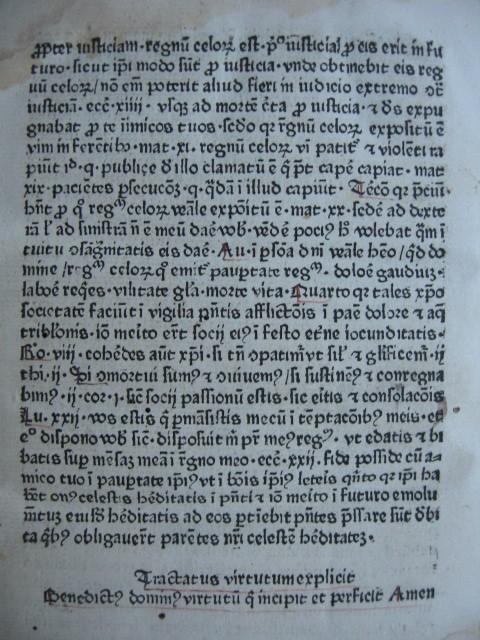 ꝓpter iusticiam· regnū celoꝝ est· p̄º iusticia ꝓ eis erit in fu
turo· sicut ip̄i modo sūt ꝓ iusticia· vnde obtinebit eis reg
nū celoꝝ/ nō em̄ poterit aliud fieri in iudicio extremo
iusticiā· ecc̄· iiij· vsqꝫ ad mortē c̄ta ꝓ iusticia· ⁊ ds̄ expu
gnabat ꝓ te īimicos tuos· sedo qꝛ rḡnū celoꝝ expositū ē
vim īn ferētibꝰ· mat· xi· regnū celoꝝ vī patit̄ ⁊ violēti ra
piūt id· q· publiçe illo clamatū ē q̄ p̄t capē capiat· mat
xix· paciētes ꝑsecucōꝫ· q· q̄dā ī illud capiūt· Tēcō qꝛ p̄ciū
hn̄t ꝓ qº regᵐ celoꝝ veāle expōitū ē· mat· xx· sedē ad dexte
rā l' ad sinistrā n̄ ē meū daē vob̄· poc̄ volebat
tuitu daē· Au· ī ꝑsōa dn̄i veāle hēo/ q̄d do
mine/ regᵐ celoꝝ q̄ emit̄ pauꝑtate regᵐ· doloē gaudiuꝫ·
laboē reqēs· vilitate gl̄a· morte vita· Quarto qꝛ tales xp̄o
societatē faciūt ī vigilia p̄ntis afflictōis ī paē dolore ⁊ aq̄
tribl̄onis· iō meito ērt socij eiꝰ ī festo et̄ne iocunditatis·
Ro· viij· cohēdes aūt xp̄i· si tn̄ ꝯpatim̄vt sil' ⁊ gl̄ificem̄· ij
thi· ij· Si ꝯmortui sumꝰ ⁊ ꝯuiuemꝰ/ si sustineꝰ ⁊ conregna
bimꝰ· ij· cor· j· sic̄ socij passionū estis· sic eitis ⁊ consolacōis
Lu· xxij· vos estis q̄ ꝑmāsistis mecū ī tēptacōibꝰ meis· et
eº dispono vob̄ sic̄· disposuit m̄ pr̄ meꝰ regᵐ· vt edatis ⁊ bi
batis suꝑ mēsaꝫ meā ī rḡno meo· ecc̄· xxij· fidē posside cū a⸗
mico tuo ī pauꝑtate ip̄iꝰ vt ī bōis ip̄iꝰ leteis qn̄to qꝛ ip̄i ha
bēt onꝰ celestis hēditatis ī p̄nti ⁊ iō meito ī futuro emolu
mētuꝫ euisdō hēditatis ad eos ꝑtiēbit p̄ntes p̄ssare sūt dēbi
ta q̄bꝰ obligauerūt parētes nr̄i celestē hēditateꝫ·
Tractatus virtutum explicit
Benedictꝰ dominꝰ virtutū q̄ incipit et perficit Amen